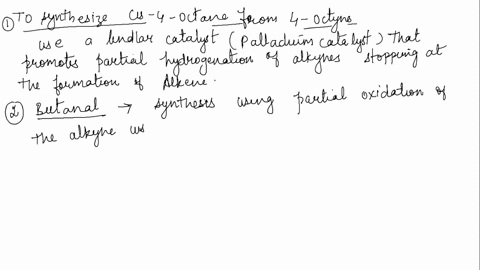 ① To synthesize cis-4-octane from 4-octyne
use a lindlar catalyst (Palladium catalyst) that
promotes partial hydrogenation of alkynes stopping at
the formation of Alkene.
② Butanal → synthesis using partial oxidation of
the alkyne us